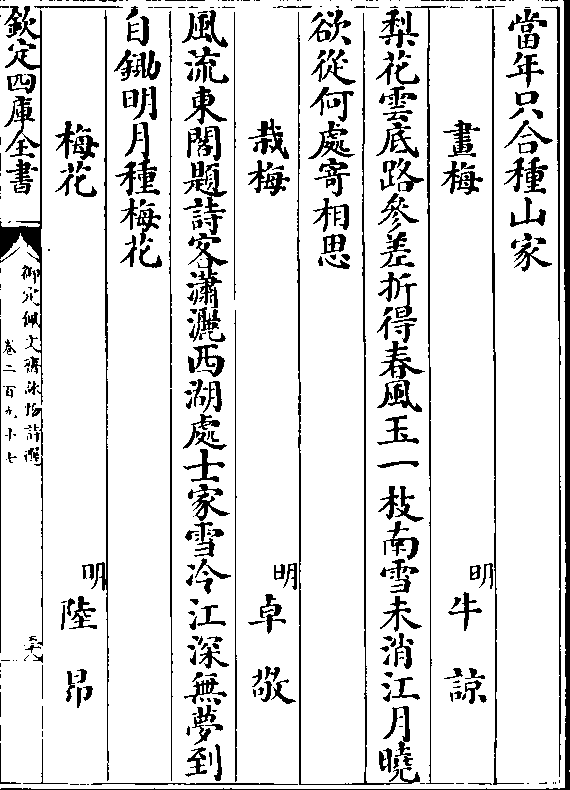 當年只合種山家
畫梅 明牛諒
梨花雲底路參差折得春風玉一枝南雪未消江月曉
欲從何處寄相思
栽梅 明卓敬
風流東閣題詩客瀟灑西湖處士家雪冷江深無夢到
自鋤明月種梅花
梅花 明陸昂
欽定四庫全書
御定佩文齋詠物詩選
卷二百九十七